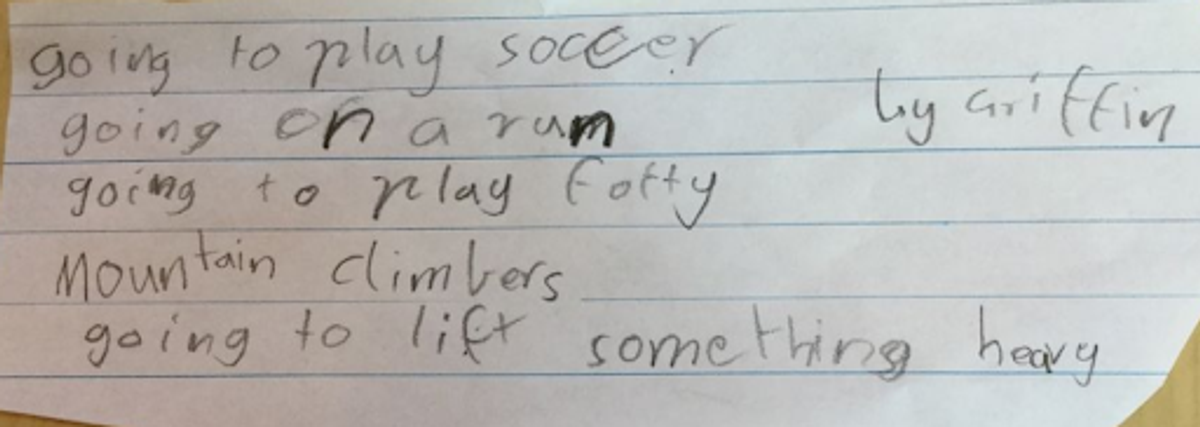 going to play soccer
by Griffin
going on a run
going to play fotty
Mountain climbers
going to lift something heavy